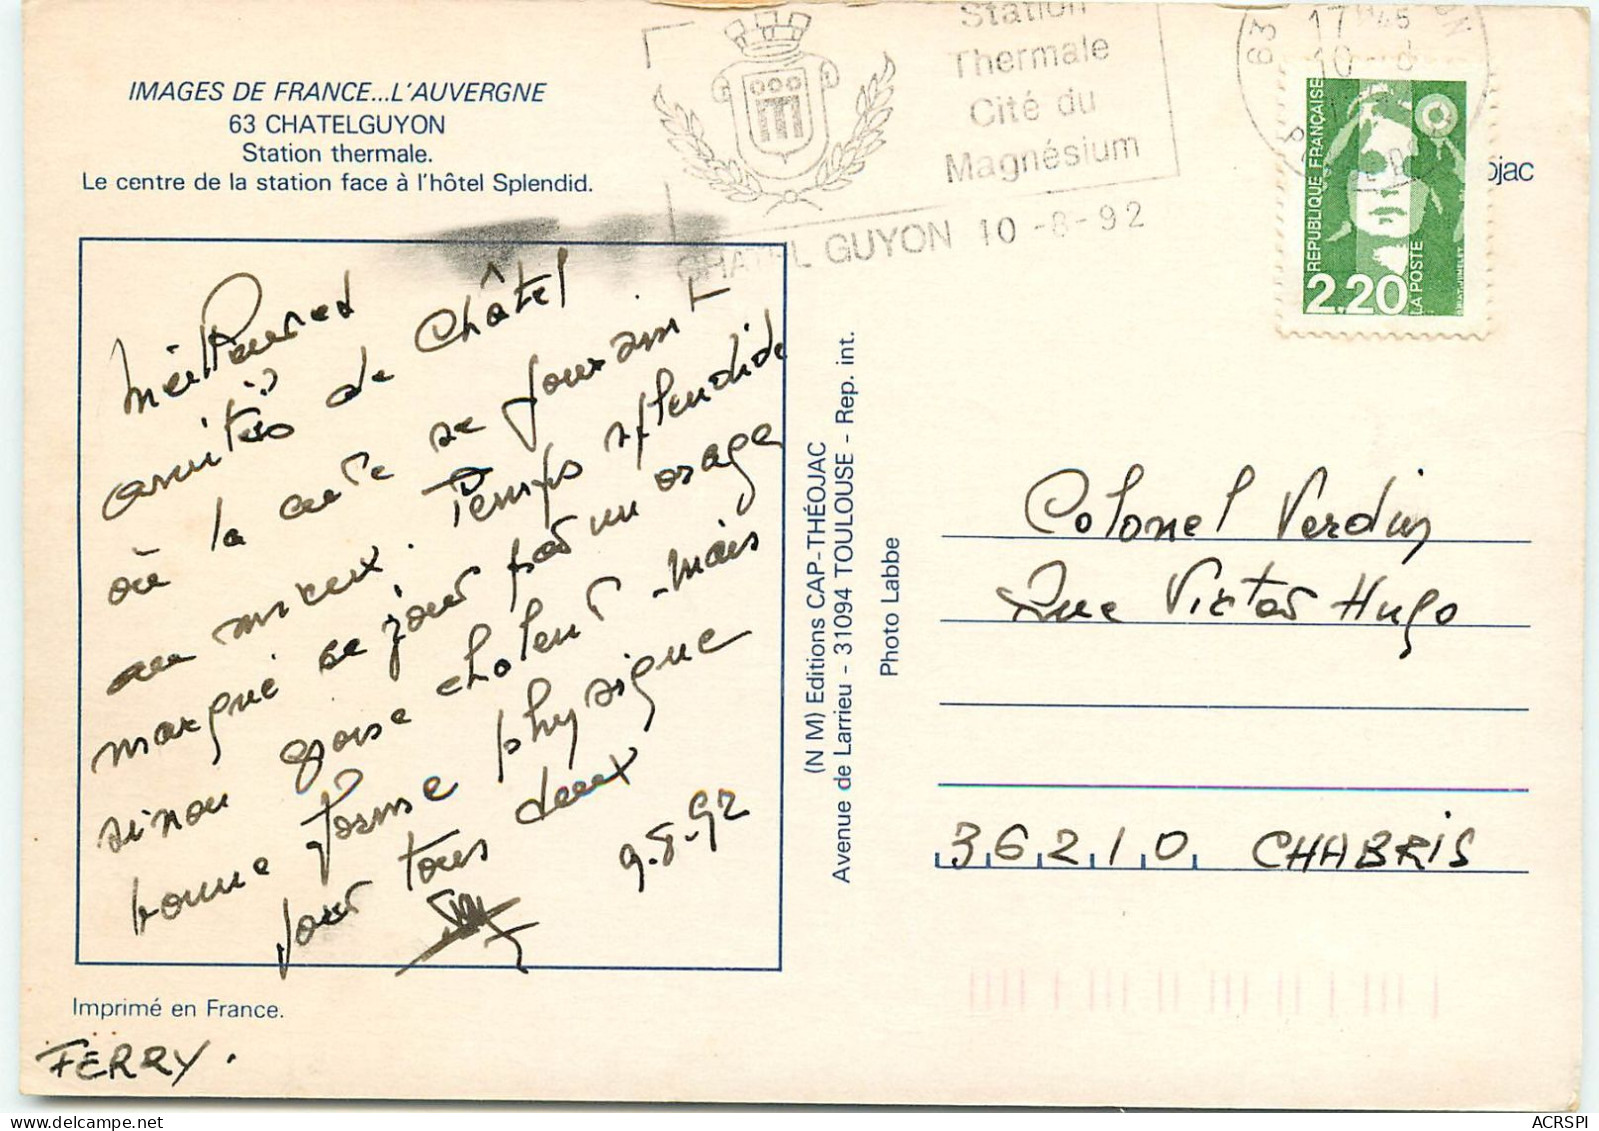 IMAGES DE FRANCE...L'AUVERGNE
63 CHATELGUYON
Station thermale.
Le centre de la station face à l'hôtel Splendid.
Station
Thermale
Cité du
Magnésium
CHATEL GUYON 10-8-92
63
17H45
10-8
RÉPUBLIQUE FRANÇAISE
2.20
LA POSTE
ojac
amitiés de Châtel
où la cure se poursuit
au mieux. Temps splendide
marqué ce jour par un orage
sinon grosse chaleur - mais
bonne forme physique
pour tous deux
9.8.92
(N M) Editions CAP-THÉOJAC
Avenue de Larrieu - 31094 TOULOUSE - Rep. int.
Photo Labbe
Colonel Verdin
Rue Victor Hugo
36210 CHABRIS
Imprimé en France.
FERRY.
ACRSPI